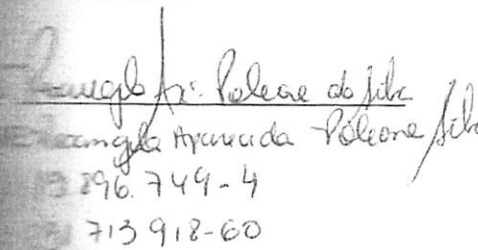 Ap. Poleone da Silva
Aparecida Poleone Silva
19.896.749-4
713 918-60